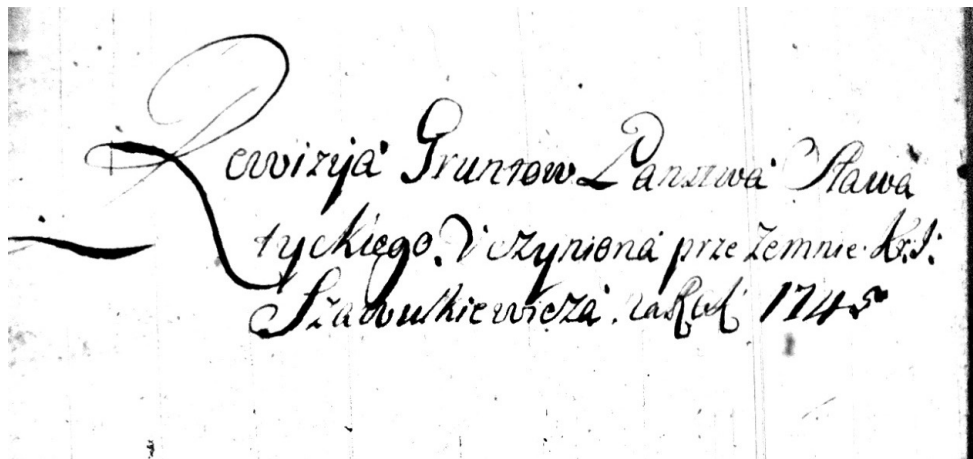 Rewizyja Gruntow Panstwa Sława
tyckiego. Vczyniona prze zemnie K: J:
Szawulkiewicza. za Rok 1745